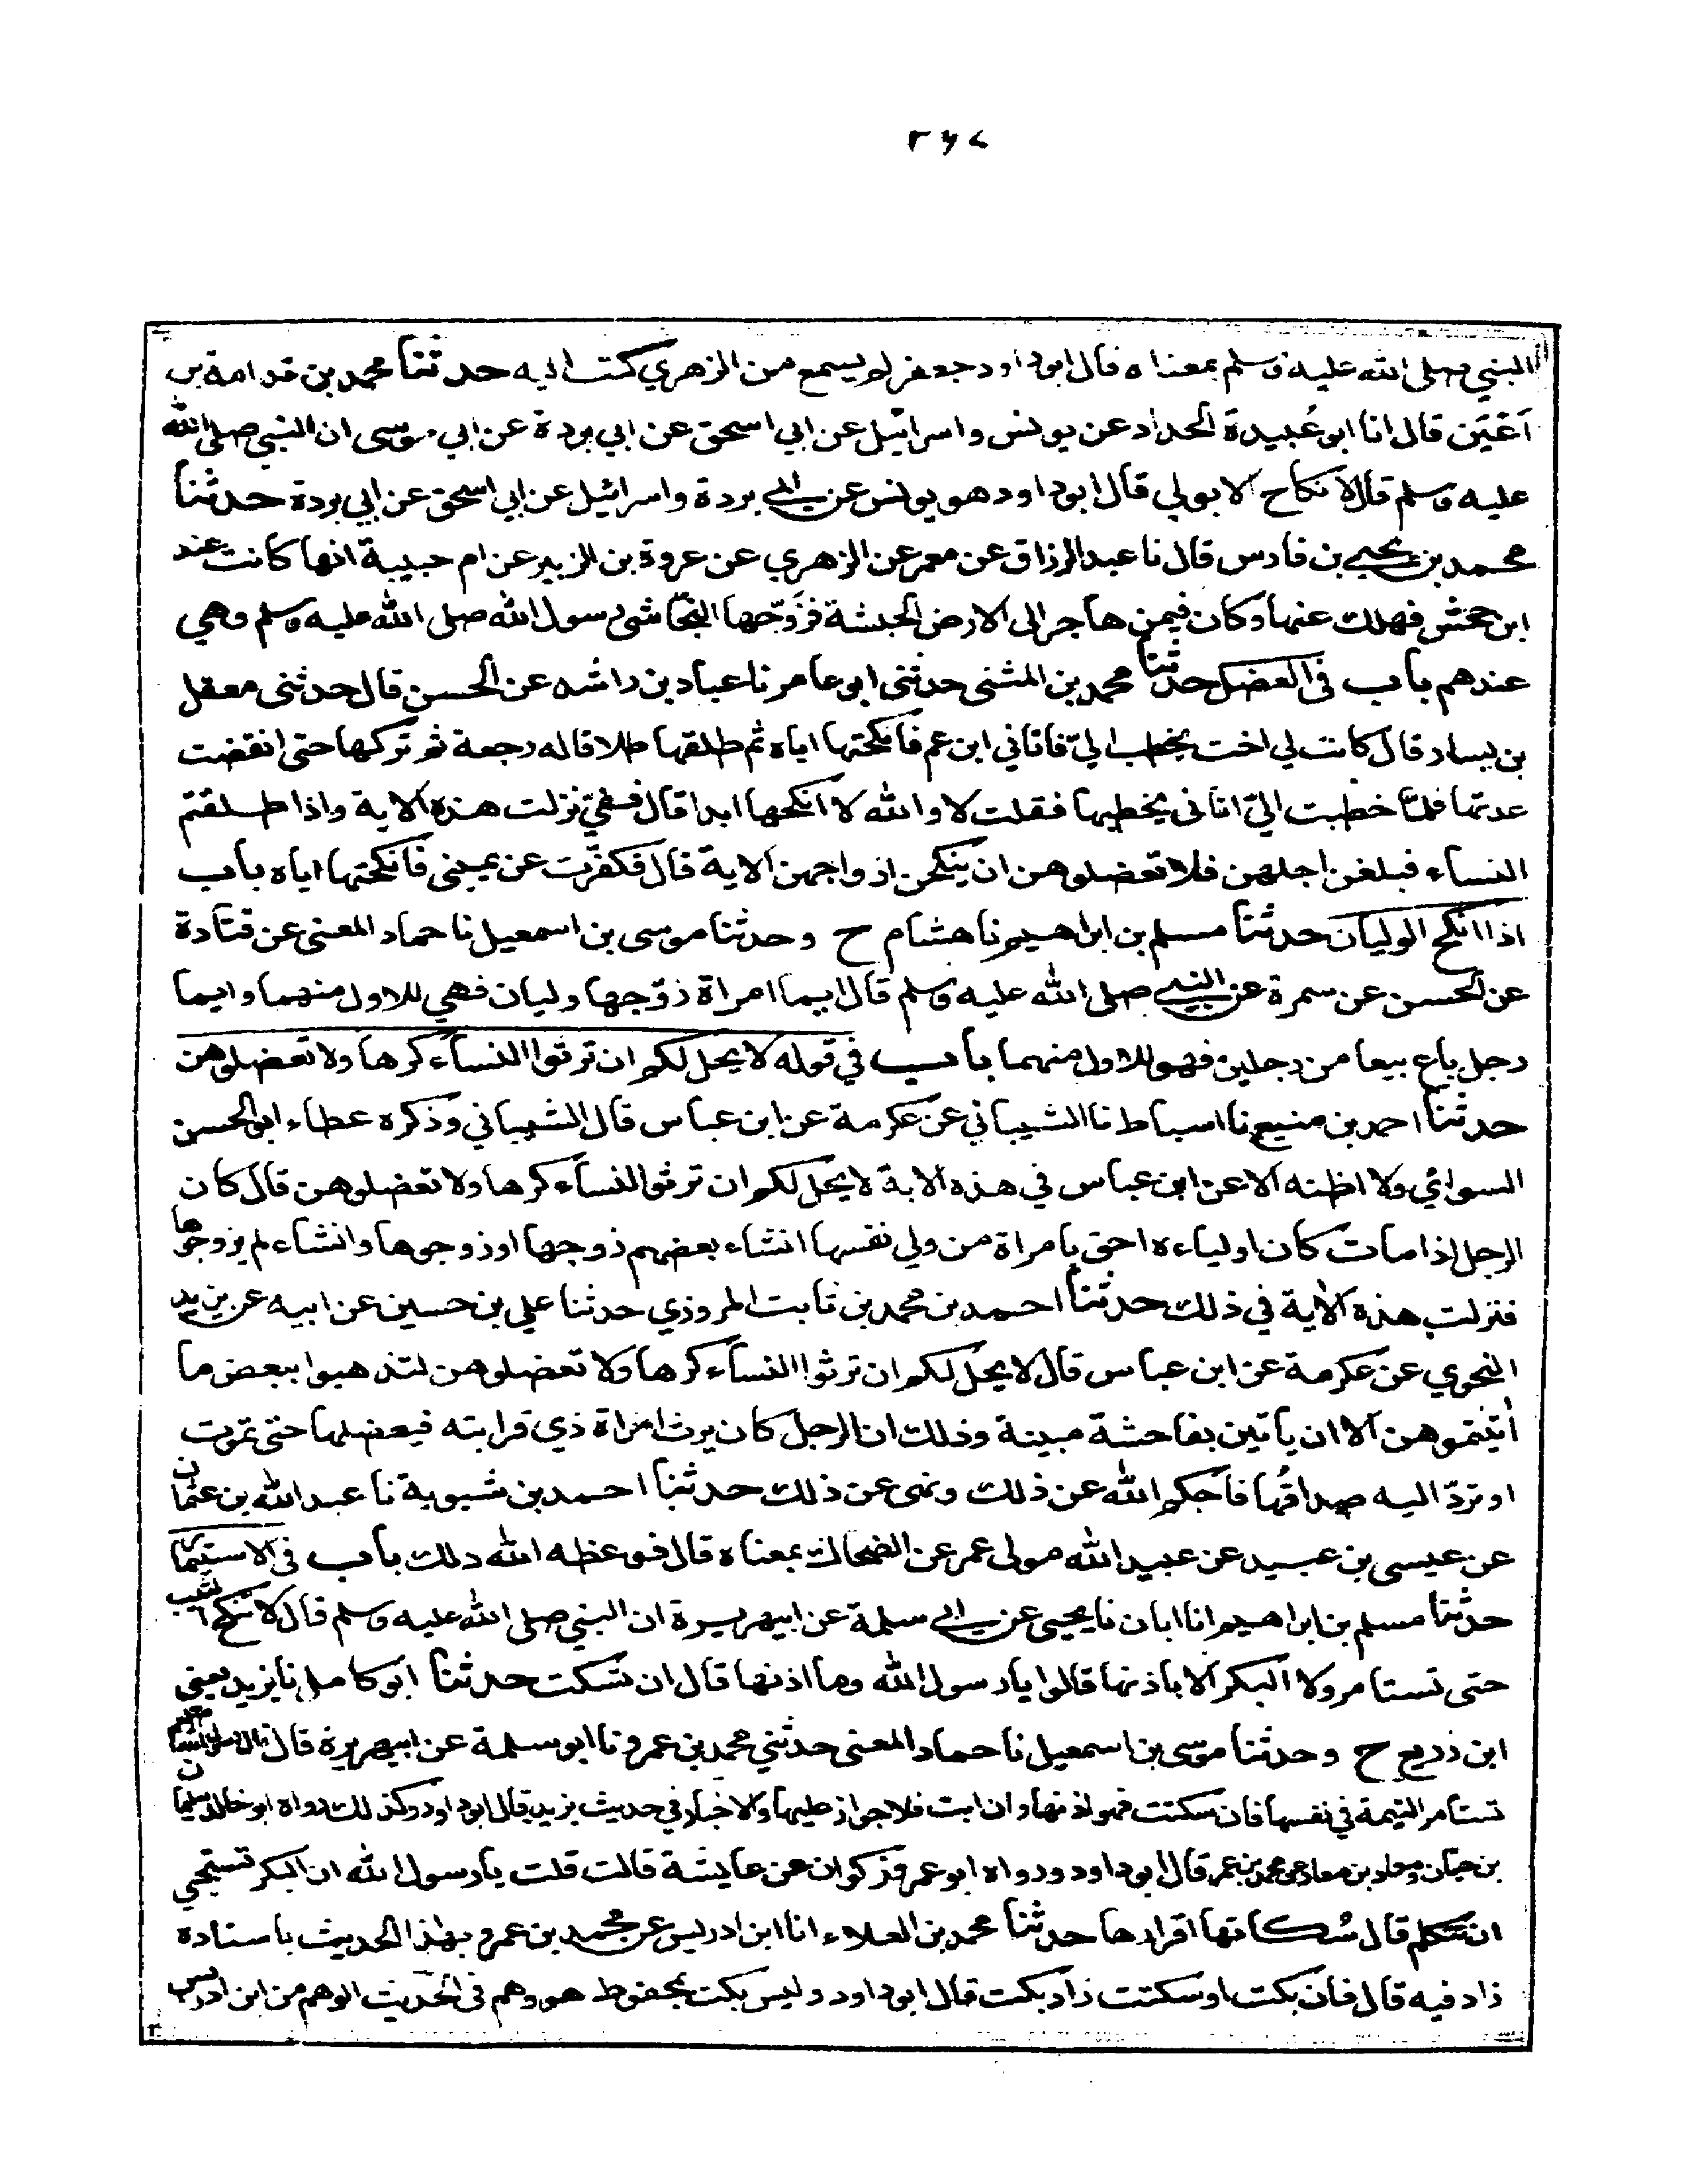 ٢٦٧
النبي صلى الله عليه وسلم بمعناه قال ابوداود جعفر لم يسمع من الزهري كتب اليه حدثنا محمد بن قدامة بن
اَعْيَن قال انا ابو عُبيدة الحداد عن يونس واسرائيل عن ابي اسحق عن ابي بردة عن ابي موسى ان النبي صلى الله
عليه وسلم قال لا نكاح الا بولي قال ابوداود هو يونس عن ابي بردة واسرائيل عن ابي اسحق عن ابي بردة حدثنا
محمد بن يحيى بن فارس قال نا عبد الرزاق عن معمر عن الزهري عن عروة بن الزبير عن ام حبيبة انها كانت عند
ابن جحش فهلك عنها وكان فيمن هاجر الى الارض الحبشة فزَوّجها النجّاشى رسول الله صلى الله عليه وسلم وهي
عندهم باب في العضل حدثنا محمد بن المثنى حدثنى ابو عامر نا عباد بن راشد عن الحسن قال حدثنى معقل
بن يسار قال كانت لي اخت يخطب اليّ فاتاني ابن عم فانكحتها اياه ثم طلقها طلاقا له رجعة ثم تركها حتى انقضت
عدتها فلمّا خطبت اليّ اتانى يخطبها فقلت لا والله لا انكحها ابدا قال ففيّ نزلت هذه الاية واذا طلقتم
النساء فبلغن اجلهن فلا تعضلوهن ان ينكحن ازواجهن الاية قال فكفّرت عن يميني فانكحتها اياه باب
اذا انكح الوليان حدثنا مسلم بن ابراهيم نا هشام ح وحدثنا موسى بن اسمعيل نا حماد المعنى عن قتادة
عن الحسن عن سمرة عن النبي صلى الله عليه وسلم قال ايما امراة زوّجها وليان فهي للاول منهما وايما
رجل باع بيعا من رجلين فهو للاول منهما باب في قوله لا يحل لكم ان ترثوا النساء كرها ولا تعضلوهن
حدثنا احمد بن منيع نا اسباط نا الشيباني عن عكرمة عن ابن عباس قال الشيباني وذكره عطاء ابو الحسن
السوائي ولا اظنه الا عن ابن عباس في هذه الاية لا يحل لكم ان ترثوا النساء كرها ولا تعضلوهن قال كان
الرجل اذا مات كان اولياءه احق بامراة من ولي نفسها انشاء بعضهم زوجها او زوجوها وانشاء لم يزوجوها
فنزلت هذه الاية في ذلك حدثنا احمد بن محمد بن ثابت المروزي حدثنا علي بن حسين عن ابيه عن يزيد
النحوي عن عكرمة عن ابن عباس قال لا يحل لكم ان ترثوا النساء كرها ولا تعضلوهن لتذهبوا ببعض ما
أتيتموهن الا ان ياتين بفاحشة مبينة وذلك ان الرجل كان يرث امراة ذي قرابته فيعضلها حتى تموت
او تردّ اليه صداقُها فاحكم الله عن ذلك ونهى عن ذلك حدثنا احمد بن شبوية نا عبد الله بن عثمان
عن عيسى بن عبيد عن عبيد الله مولى عمر عن الضحاك بمعناه قال فوعظه الله ذلك باب في الاستيمار
حدثنا مسلم بن ابراهيم انا ابان نا يحيى عن ابي سلمة عن ابي هريرة ان النبي صلى الله عليه وسلم قال لا تنكح الثيب
حتى تستامر ولا البكر الا باذنها قالوا يا رسول الله وما اذنها قال ان تسكت حدثنا ابو كامل نا يزيد يعنى
ابن زريع ح وحدثنا موسى بن اسمعيل نا حماد المعنى حدثني محمد بن عمرو نا ابو سلمة عن ابي هريرة قال قال رسول الله صلى الله عليه وسلم
تستامر اليتيمة في نفسها فان سكتت فهو اذنها وان ابت فلا جواز عليها والاخبار في حديث يزيد قال ابوداود وكذلك رواه ابو خالد سليمان
بن حيان ومعاد بن معاد عن محمد بن عمر قال ابوداود ورواه ابو عمرو ذكوان عن عايشة قالت قلت يا رسول الله ان البكر تستحيي
ان تتكلم قال سُكاتها اقرارها حدثنا محمد بن العلاء انا ابن ادريس عن محمد بن عمرو بهذا الحديث باسناده
زاد فيه قال فان بكت او سكتت زاد بكت قال ابوداود وليس بكت بمحفوظ هو وهم في الحديث الوهم من ابن ادريس